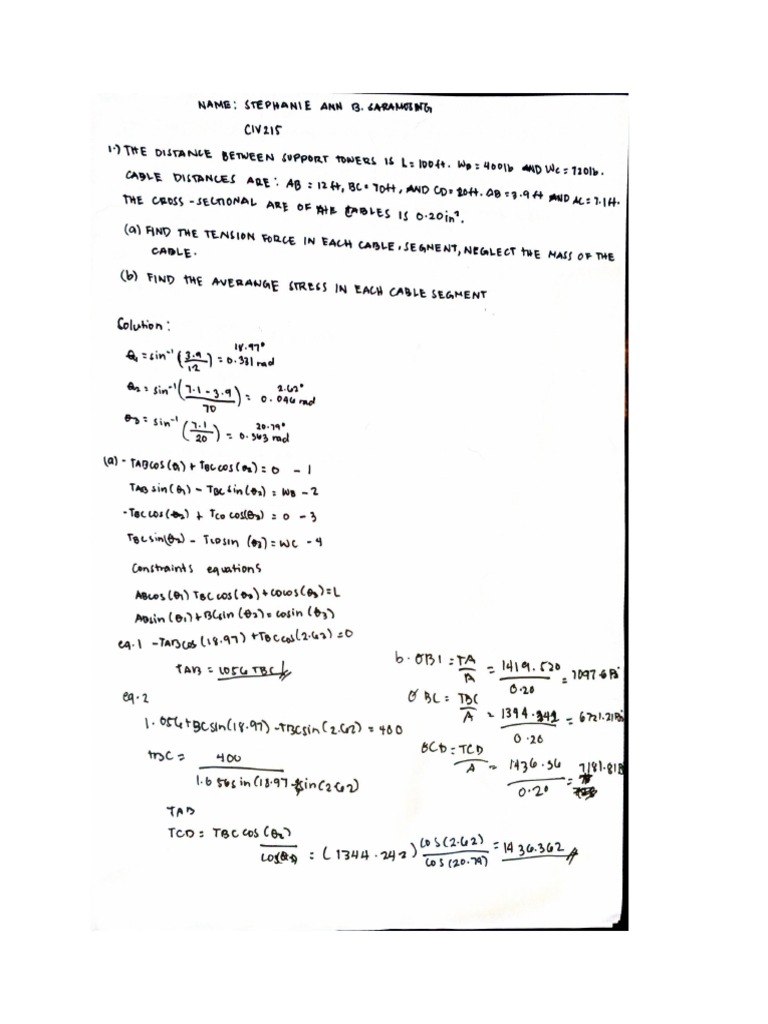 NAME: STEPHANIE ANN B. SARAMOSING
CIV215
1.) THE DISTANCE BETWEEN SUPPORT TOWERS IS L = 100ft. WB = 400lb AND WC = 720lb.
CABLE DISTANCES ARE: AB = 12ft, BC = 70ft, AND CD = 20ft. QB = 3.9 ft AND AC = 7.1ft.
THE CROSS-SECTIONAL ARE OF THE CABLES IS 0.20in².
(a) FIND THE TENSION FORCE IN EACH CABLE, SEGMENT, NEGLECT THE MASS OF THE
CABLE.
(b) FIND THE AVERANGE STRESS IN EACH CABLE SEGMENT
Solution:
θ1 = sin⁻¹ (3.9/12) = 0.331 rad 18.97°
θ2 = sin⁻¹ (7.1 - 3.9/70) = 0.046 rad 2.62°
θ3 = sin⁻¹ (7.1/20) = 0.363 rad 20.79°
(a) - TAB cos (θ1) + TBC cos (θ2) = 0 - 1
TAB sin (θ1) - TBC sin (θ2) = WB - 2
-TBC cos (θ2) + TCD cos(θ3) = 0 - 3
TBC sin(θ2) - TCD sin (θ3) = WC - 4
Constraints equations
AB cos (θ1) TBC cos (θ2) + CD cos (θ3) = L
AB sin (θ1) + BC sin (θ2) = cosin (θ3)
eq. 1 - TAB cos (18.97) + TBC cos (2.62) = 0
TAB = 1056 TBC
eq. 2
1.056 TBC sin (18.97) - TBC sin (2.62) = 400
TBC = 400 / 1.656 sin (18.97 - sin (2.62)
TAB
TCD = TBC cos (θ2) / cos(θ3) = (1344.242) cos (2.62) / cos (20.79) = 1436.362
b. σB1 = TA/A = 1419.520/0.20 = 7097.6 Psi
σBC = TBC/A = 1344.242/0.20 = 6721.21 Psi
σCD = TCD/A = 1436.36/0.20 = 7181.81